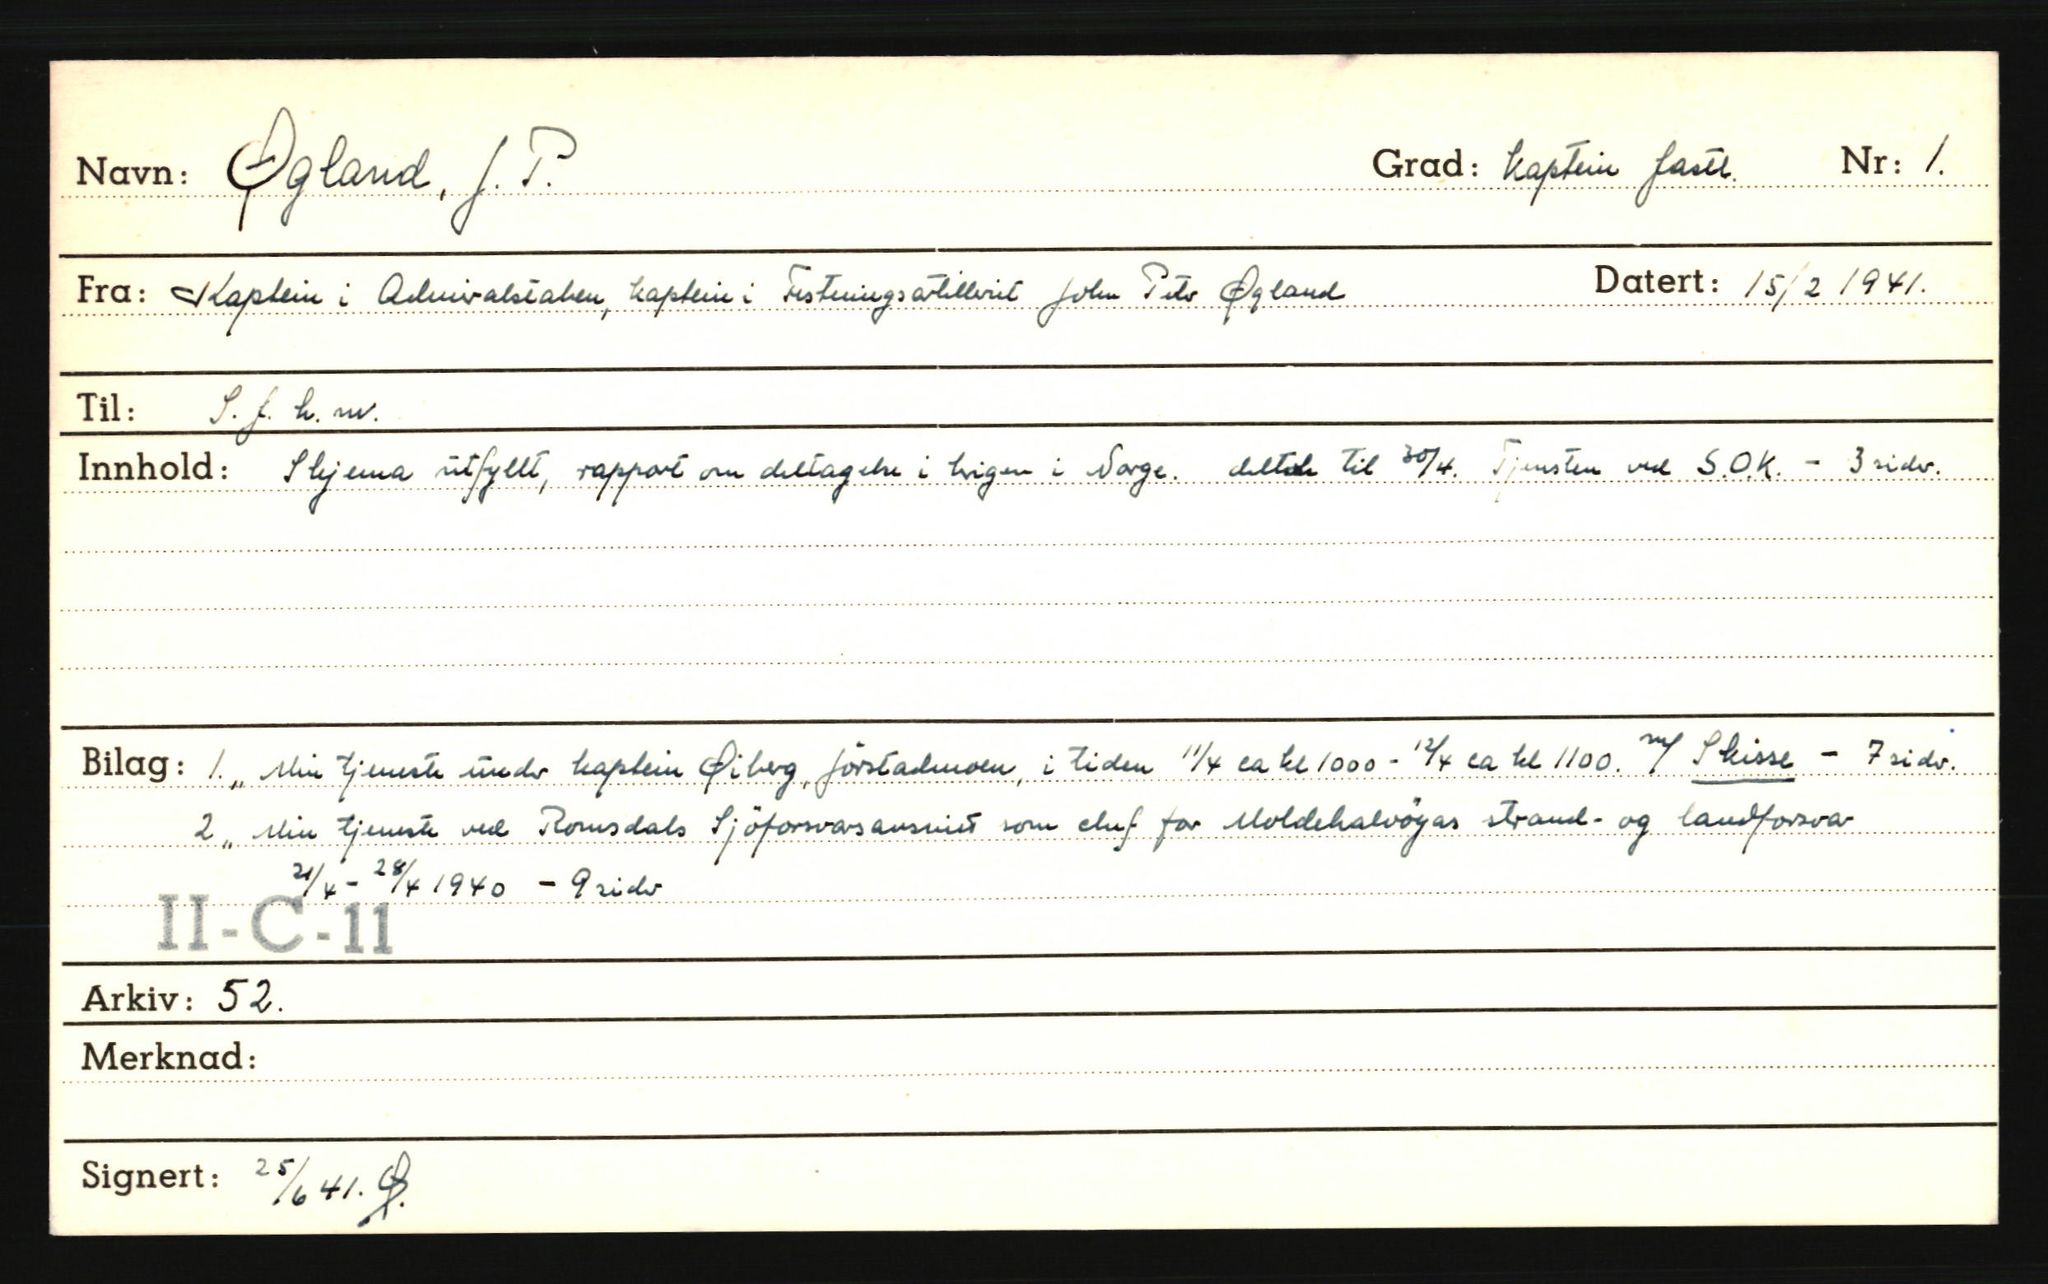 Navn: Øgland, J. P. Grad: Kaptein fastl. Nr: 1.
Fra: Kaptein i Admiralstaben, kaptein i Festningsartilleriet John Peter Øgland Datert: 15/2 1941.
Til: S. f. h. m.
Innhold: Skjema utfyllt, rapport om deltagelse i krigen i Norge. deltok til 30/4. Tjensten ved S.O.K. - 3 sider.
Bilag: 1. „ Min tjeneste under kaptein Øiberg, Jörstadmoen, i tiden 11/4 ca kl 1000 - 12/4 ca kl 1100. m/ Skisse - 7 sider.
2 „ Min tjeneste ved Romsdals Sjöforsvarsavsnitt som chef for Moldehalvöyas strand- og landforsvar
21/4 - 28/4 1940 - 9 sider
II-C-11
Arkiv: 52.
Merknad:
Signert: 25/6 41. Ø.